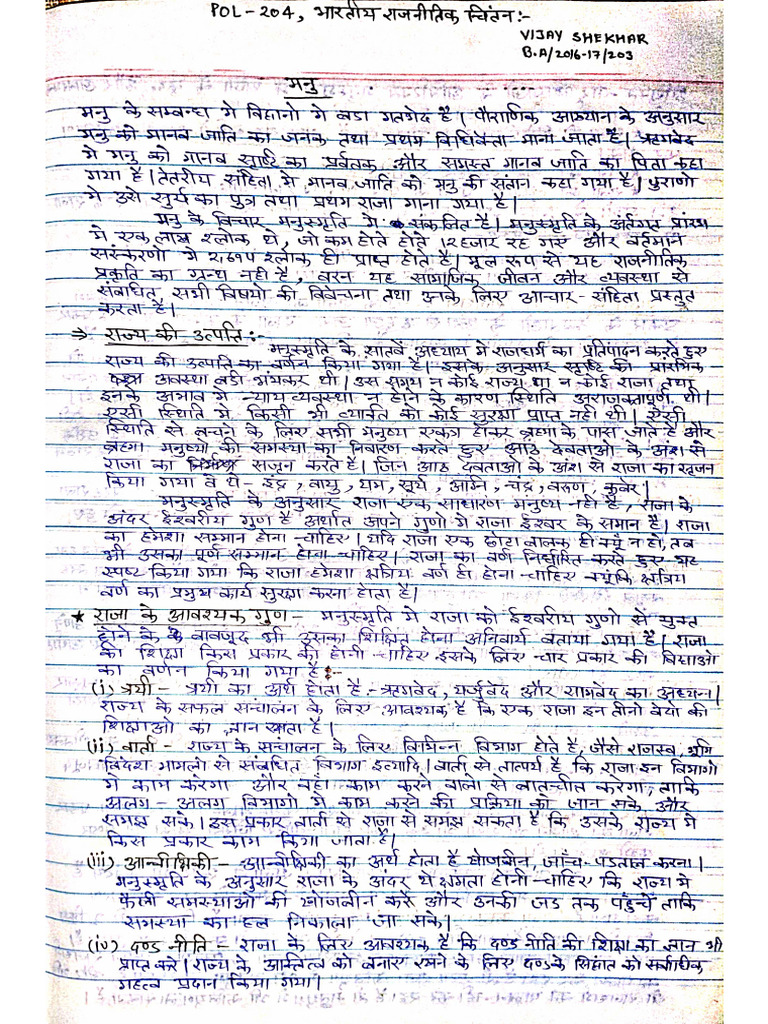 POL-204, भारतीय राजनीतिक चिंतन:-
VIJAY SHEKHAR
B.A/2016-17/203
मनु
मनु के सम्बन्ध मे विद्वानो मे बडा मतभेद है। पौराणिक आख्यान के अनुसार
मनु को मानव जाति का जनक तथा प्रथम विधिवेता माना जाता है। ऋगवेद
मे मनु को मानव सृष्टि का प्रर्वतक और समस्त मानव जाति का पिता कहा
गया है। तेतरीय संहिता मे मानव जाति को मनु की संतान कहा गया है। पुराणो
मे उसे सुर्य का पुत्र तथा प्रथम राजा माना गया है।
मनु के विचार मनुस्मृति मे संकलित है। मनुस्मृति के अंर्तगत प्रारंभ
मे एक लाख श्लोक थे, जो कम होते होते 12 हजार रह गए और वर्तमान
संस्करणो मे 2694 श्लोक ही प्राप्त होते है। मूल रूप से यह राजनीतिक
प्रकृति का ग्रन्थ नही है, वरन यह सामाजिक जीवन और व्यवस्था से
संबंधित सभी विषयो की विवेचना तथा उनके लिए आचार-संहिता प्रस्तुत
करता है।
⇒ राज्य की उत्पति:-
मनुस्मृति के सातवें अध्याय मे राजधर्म का प्रतिपादन करते हुए
राज्य की उत्पति का वर्णन किया गया है। इसके अनुसार सृष्टि की प्रारंभिक
अवस्था बडी भंयकर थी। उस समय न कोई राज्य था न कोई राजा तथा
इनके अभाव मे न्याय व्यवस्था न होने के कारण स्थिति अराजकतापूर्ण थी।
एसी स्थिति मे किसी भी व्यक्ति को कोई सुरक्षा प्राप्त नही थी। ऐसी
स्थिति से बचने के लिए सभी मनुष्य एकत्र होकर ब्रह्मा के पास जाते है और
ब्रह्मा मनुष्यो की समस्या का निवारण करते हुए आठ देवताओ के अंश से
राजा का सृजन करते है। जिन आठ देवताओ के अंश से राजा का सृजन
किया गया वे थे- इंद्र, वायु, यम, सूर्य, अग्नि, चंद्र, वरूण, कुबेर।
मनुस्मृति के अनुसार राजा एक साधारण मनुष्य नही है, राजा के
अंदर ईश्वरीय गुण है अर्थात अपने गुणो मे राजा ईश्वर के समान है। राजा
का हमेशा सम्मान होना चाहिए। यदि राजा एक छोटा बालक ही क्यूँ न हो, तब
भी उसका पूर्ण सम्मान होना चाहिए। राजा का वर्ण निर्धारित करते हुए यह
स्पष्ट किया गया कि राजा हमेशा क्षत्रिय वर्ण ही होना चाहिए क्यूँकि क्षत्रिय
वर्ण का प्रमुख कार्य सुरक्षा करना होता है।
★ राजा के आवश्यक गुण- मनुस्मृति मे राजा को ईश्वरीय गुणो से युक्त
होने के बावजूद भी उसका शिक्षित होना अनिवार्य बताया गया है। राजा
की शिक्षा किस प्रकार की होनी चाहिए इसके लिए चार प्रकार की विद्याओ
का वर्णन किया गया है:-
(i) त्रयी- त्रयी का अर्थ होता है- ऋगवेद, यर्जुवेद और सामवेद का अध्यन।
राज्य के सफल संचालन के लिए आवश्यक है कि एक राजा इन तीनो वेदो की
शिक्षाओ का ज्ञान रखता है।
(ii) वार्ता- राज्य के संचालन के लिए विभिन्न विभाग होते है, जैसे राजस्व, भूमि
विदेश मामलो से संबंधित विभाग इत्यादि। वार्ता से तात्पर्य है कि राजा इन विभागो
मे काम करेगा और वहाँ काम करने वालो से बातचीत करेगा, ताकि
अलग-अलग विभागो मे काम करने की प्रक्रिया को जान सके और
समझ सके। इस प्रकार वार्ता से राजा से समझ सकता है कि उसके राज्य मे
किस प्रकार काम किया जाता है।
(iii) आन्वीक्षिकी- आन्वीक्षिकी का अर्थ होता है खोजबीन, जाँच-पडताल करना।
मनुस्मृति के अनुसार राजा के अंदर ये क्षमता होनी चाहिए कि राज्य मे
फैली समस्याओ की खोजबीन करे और उनकी जड तक पहुँचे ताकि
समस्या का हल निकाला जा सके।
(iv) दण्ड नीति- राजा के लिए आवश्यक है कि दण्ड नीति की शिक्षा का ज्ञान भी
प्राप्त करे। राज्य के आस्तित्व को बनाए रखने के लिए दण्ड के सिद्धांत को सर्वाधिक
महत्व प्रदान किया गया।